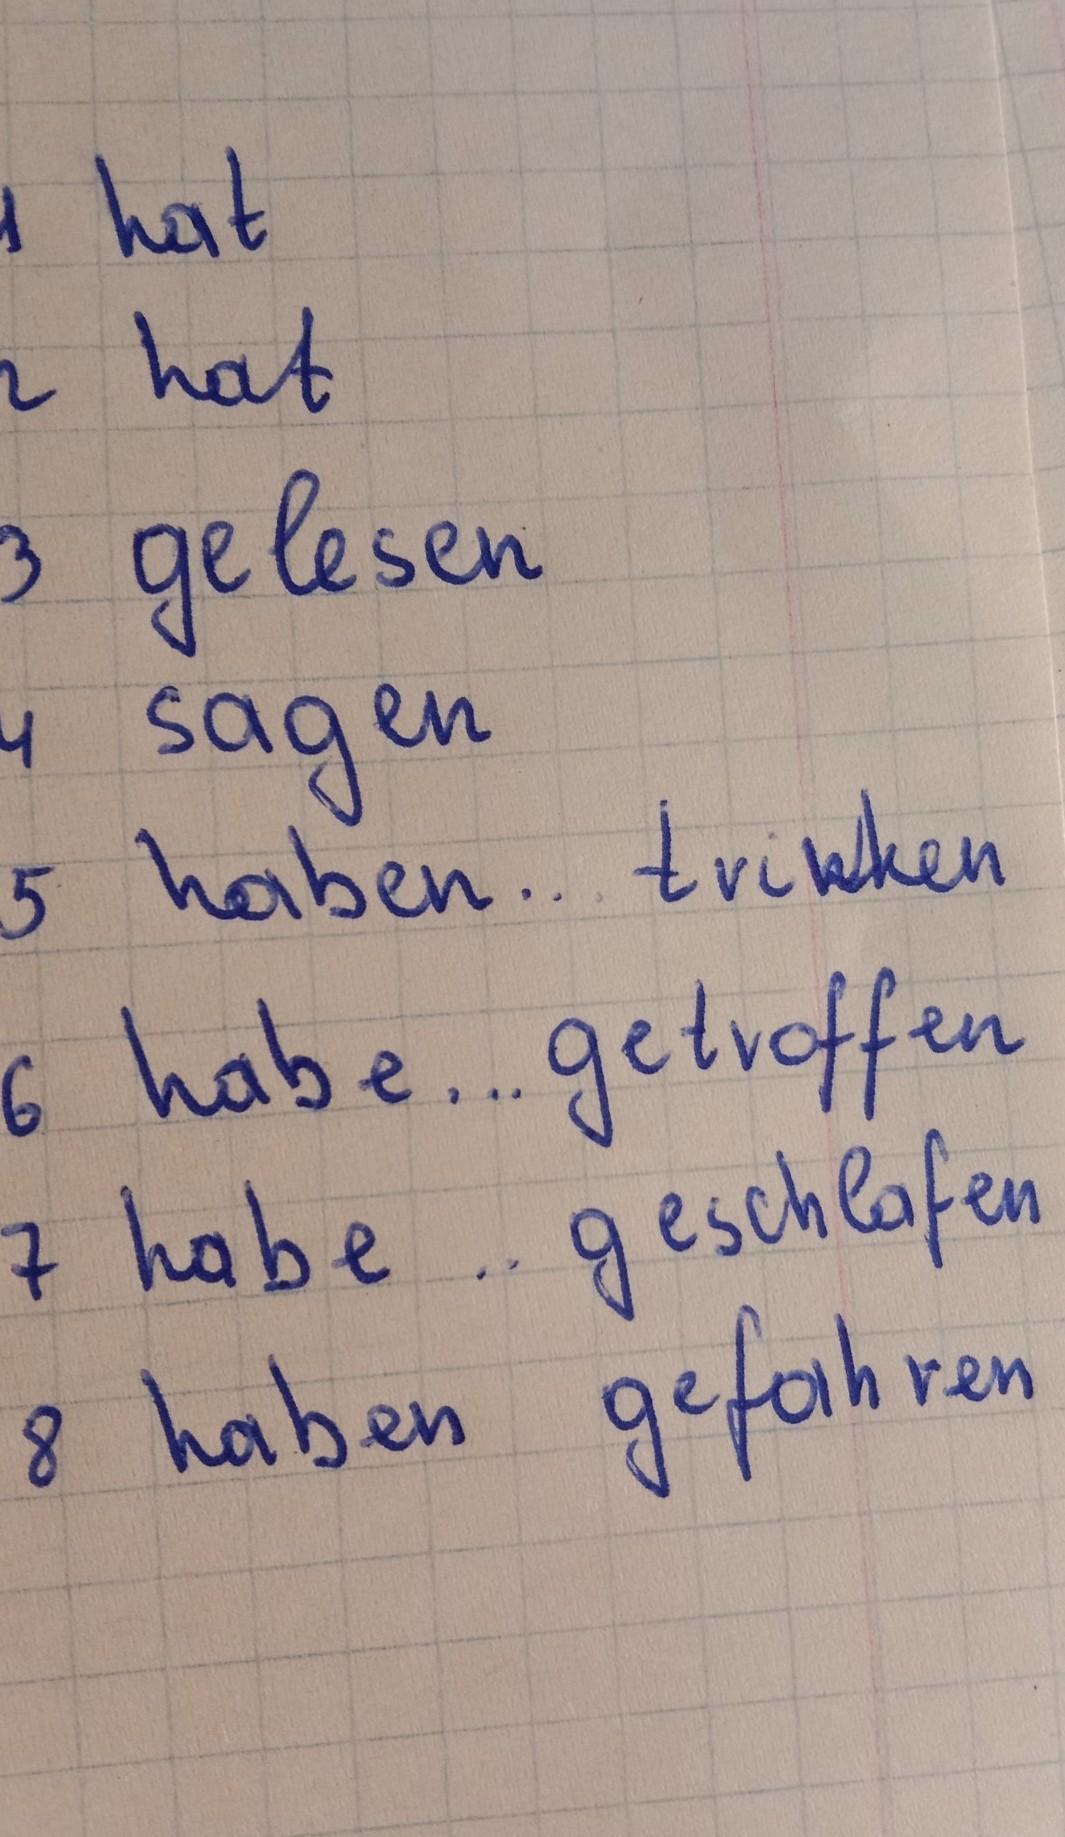 1 hat
2 hat
3 gelesen
4 sagen
5 haben... trinken
6 habe... getroffen
7 habe .. geschlafen
8 haben gefahren